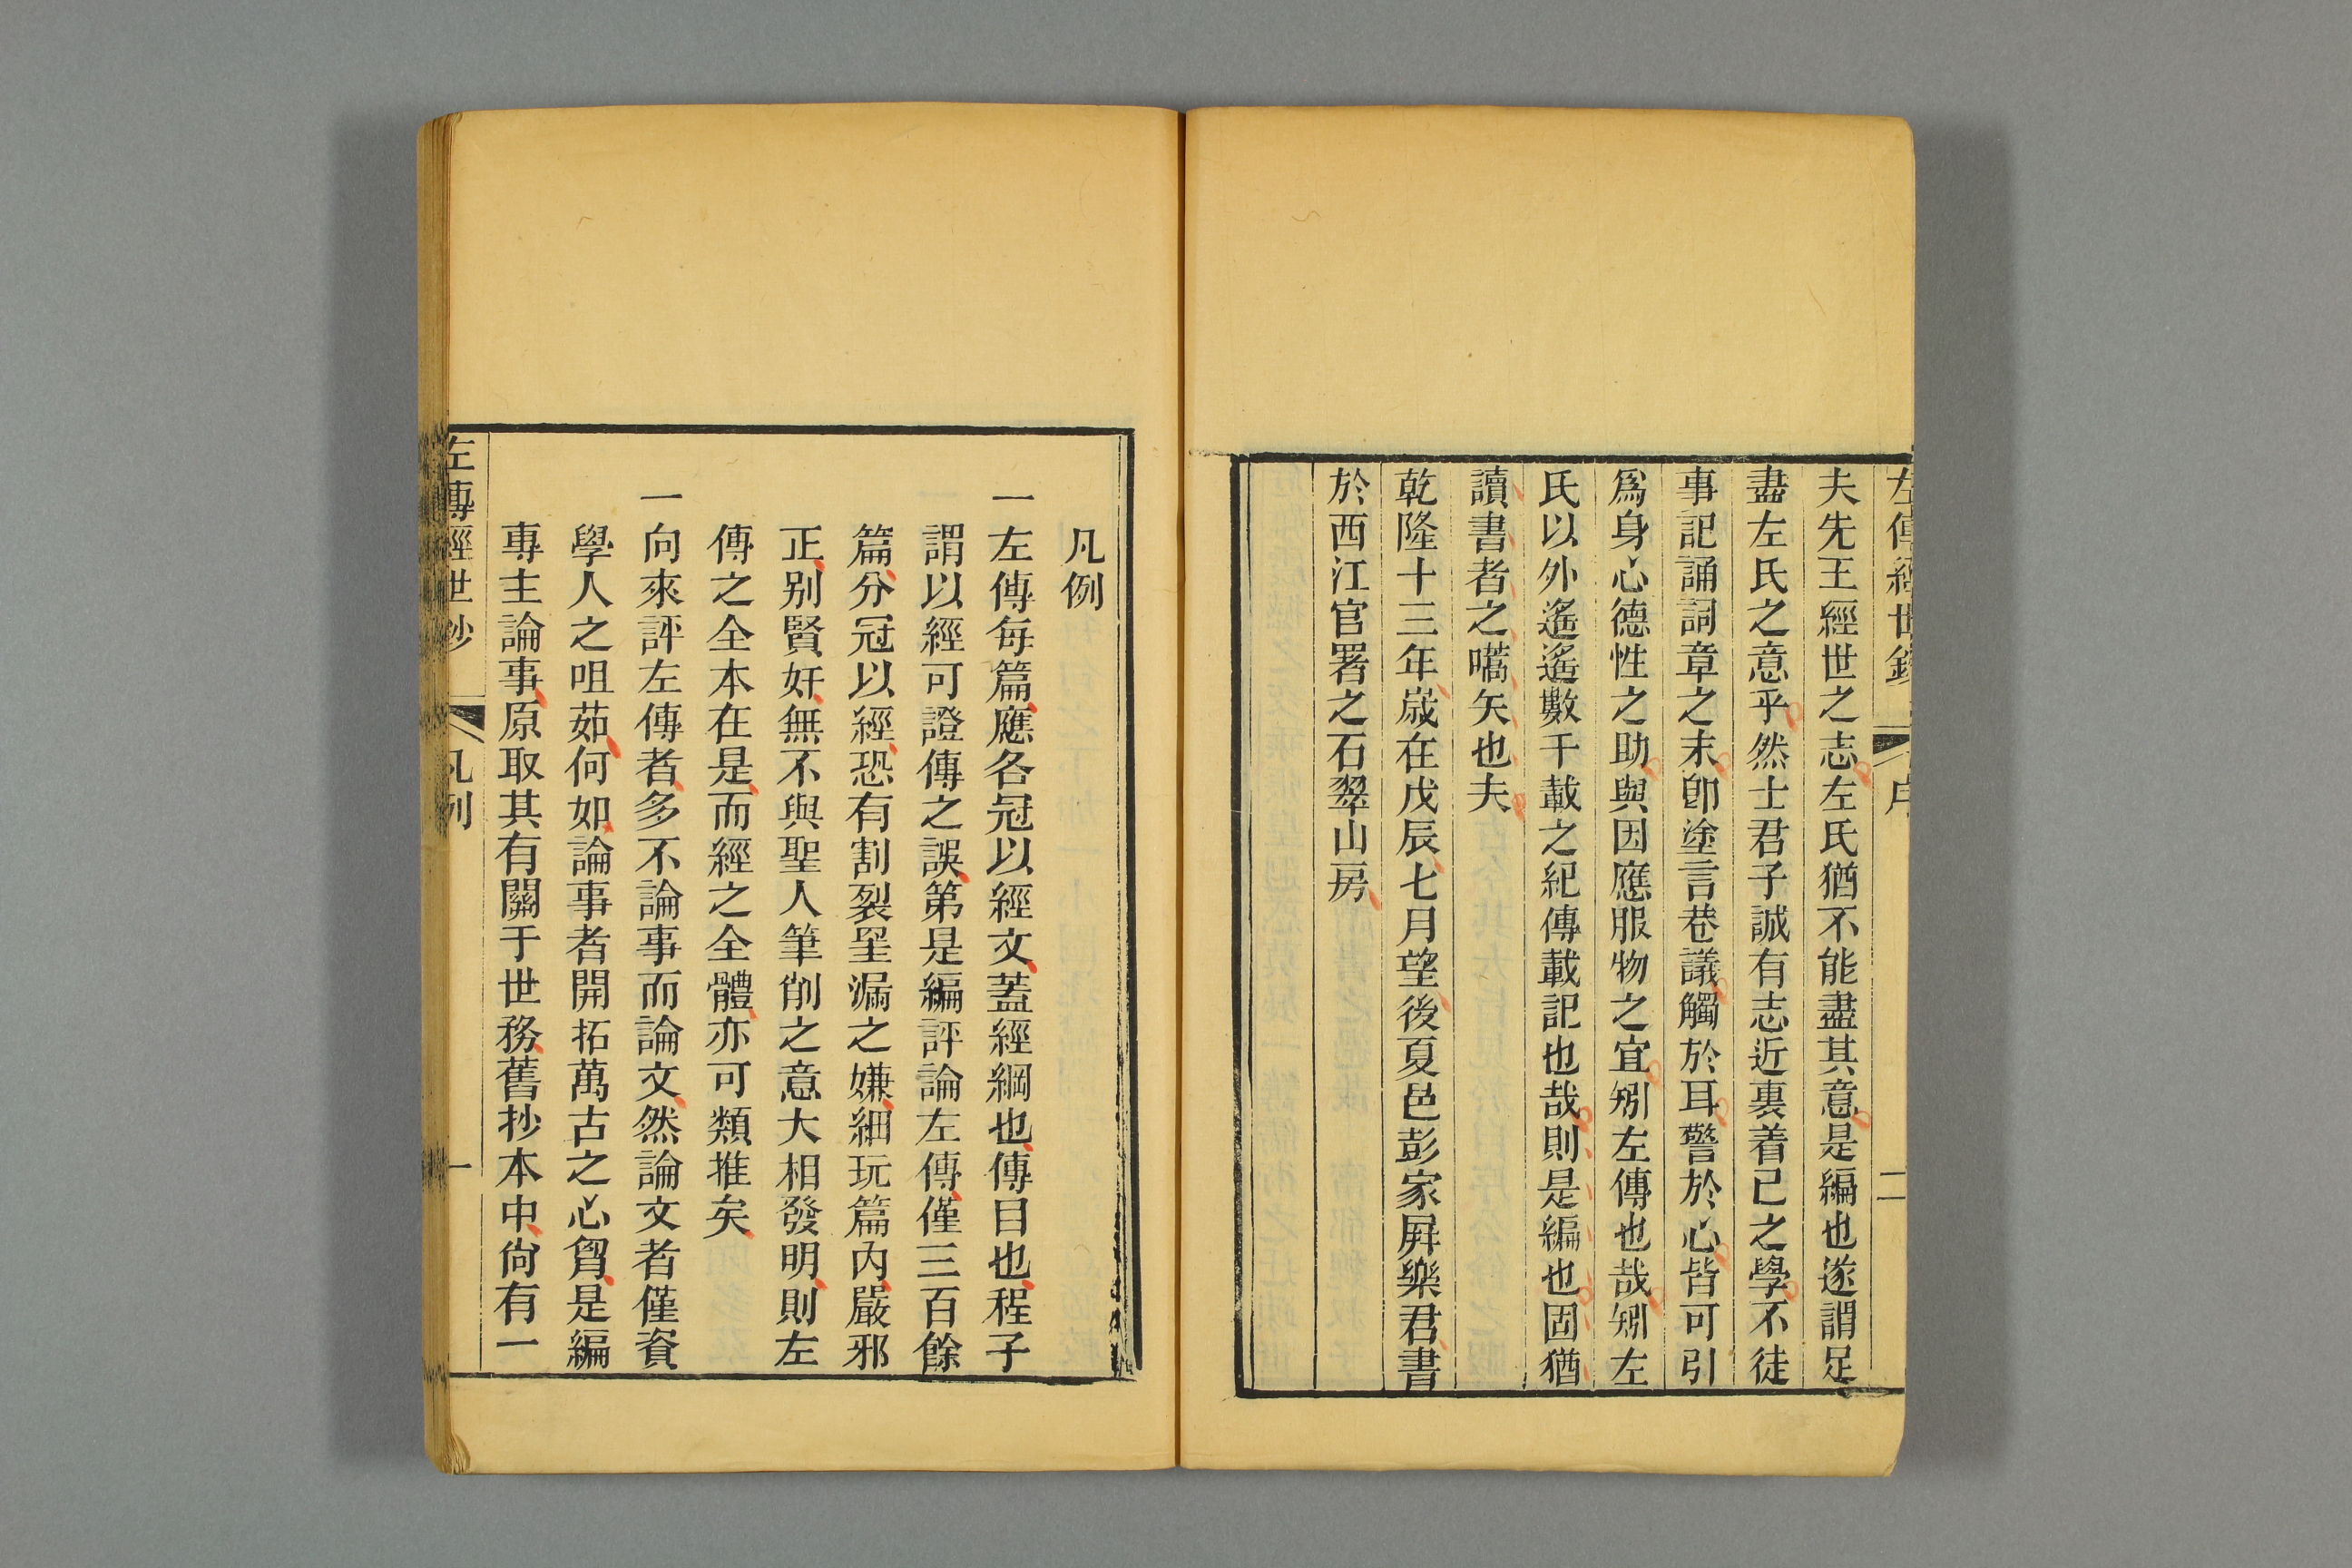 左傳經世鈔
序
二
夫先王經世之志左氏猶不能盡其意是編也遂謂足
盡左氏之意乎然士君子誠有志近裏着己之學不徒
事記誦詞章之末卽塗言巷議觸於耳警於心皆可引
爲身心德性之助與因應服物之宜矧左傳也哉矧左
氏以外遙遙數千載之紀傳載記也哉則是編也固猶
讀書者之嚆矢也夫
乾隆十三年歲在戊辰七月望後夏邑彭家屛樂君書
於西江官署之石翠山房
凡例
一左傳每篇應各冠以經文蓋經綱也傳目也程子
謂以經可證傳之誤第是編評論左傳僅三百餘
篇分冠以經恐有割裂罣漏之嫌細玩篇內嚴邪
正别賢奸無不與聖人筆削之意大相發明則左
傳之全本在是而經之全體亦可類推矣
一向來評左傳者多不論事而論文然論文者僅資
學人之咀茹何如論事者開拓萬古之心胷是編
專主論事原取其有關于世務舊抄本中尙有一
左傳經世鈔
凡例
一